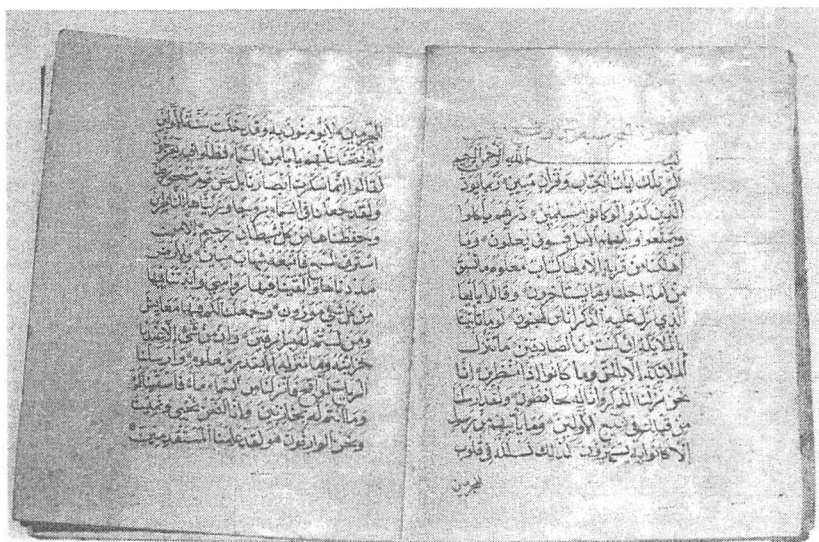 بسم الله الرحمن الرحيم
الر تلك ايات الكتاب وقران مبين ربما يود
الذين كفروا لو كانوا مسلمين ذرهم ياكلوا
ويتمتعوا ويلههم الامل فسوف يعلمون وما
اهلكنا من قرية الا ولها كتاب معلوم ما تسبق
من امة اجلها وما يستاخرون وقالوا يا ايها
الذي نزل عليه الذكر انك لمجنون لوما تاتينا
بالملائكة ان كنت من الصادقين ما ننزل
الملائكة الا بالحق وما كانوا اذا منظرين انا
نحن نزلنا الذكر وانا له لحافظون ولقد ارسلنا
من قبلك في شيع الاولين وما ياتيهم من رسول
الا كانوا به يستهزؤن كذلك نسلكه في قلوب
المجرمين
المجرمين لا يؤمنون به وقد خلت سنة الاولين
ولو فتحنا عليهم بابا من السماء فظلوا فيه يعرجون
لقالوا انما سكرت ابصارنا بل نحن قوم مسحورون
ولقد جعلنا في السماء بروجا وزيناها للناظرين
وحفظناها من كل شيطان رجيم الا من
استرق السمع فاتبعه شهاب مبين والارض
مددناها والقينا فيها رواسي وانبتنا فيها
من كل شئ موزون وجعلنا لكم فيها معايش
ومن لستم له برازقين وان من شئ الا عندنا
خزائنه وما ننزله الا بقدر معلوم وارسلنا
الرياح لواقح فانزلنا من السماء ماء فاسقيناكموه
وما انتم له بخازنين وانا لنحن نحيي ونميت
ونحن الوارثون ولقد علمنا المستقدمين